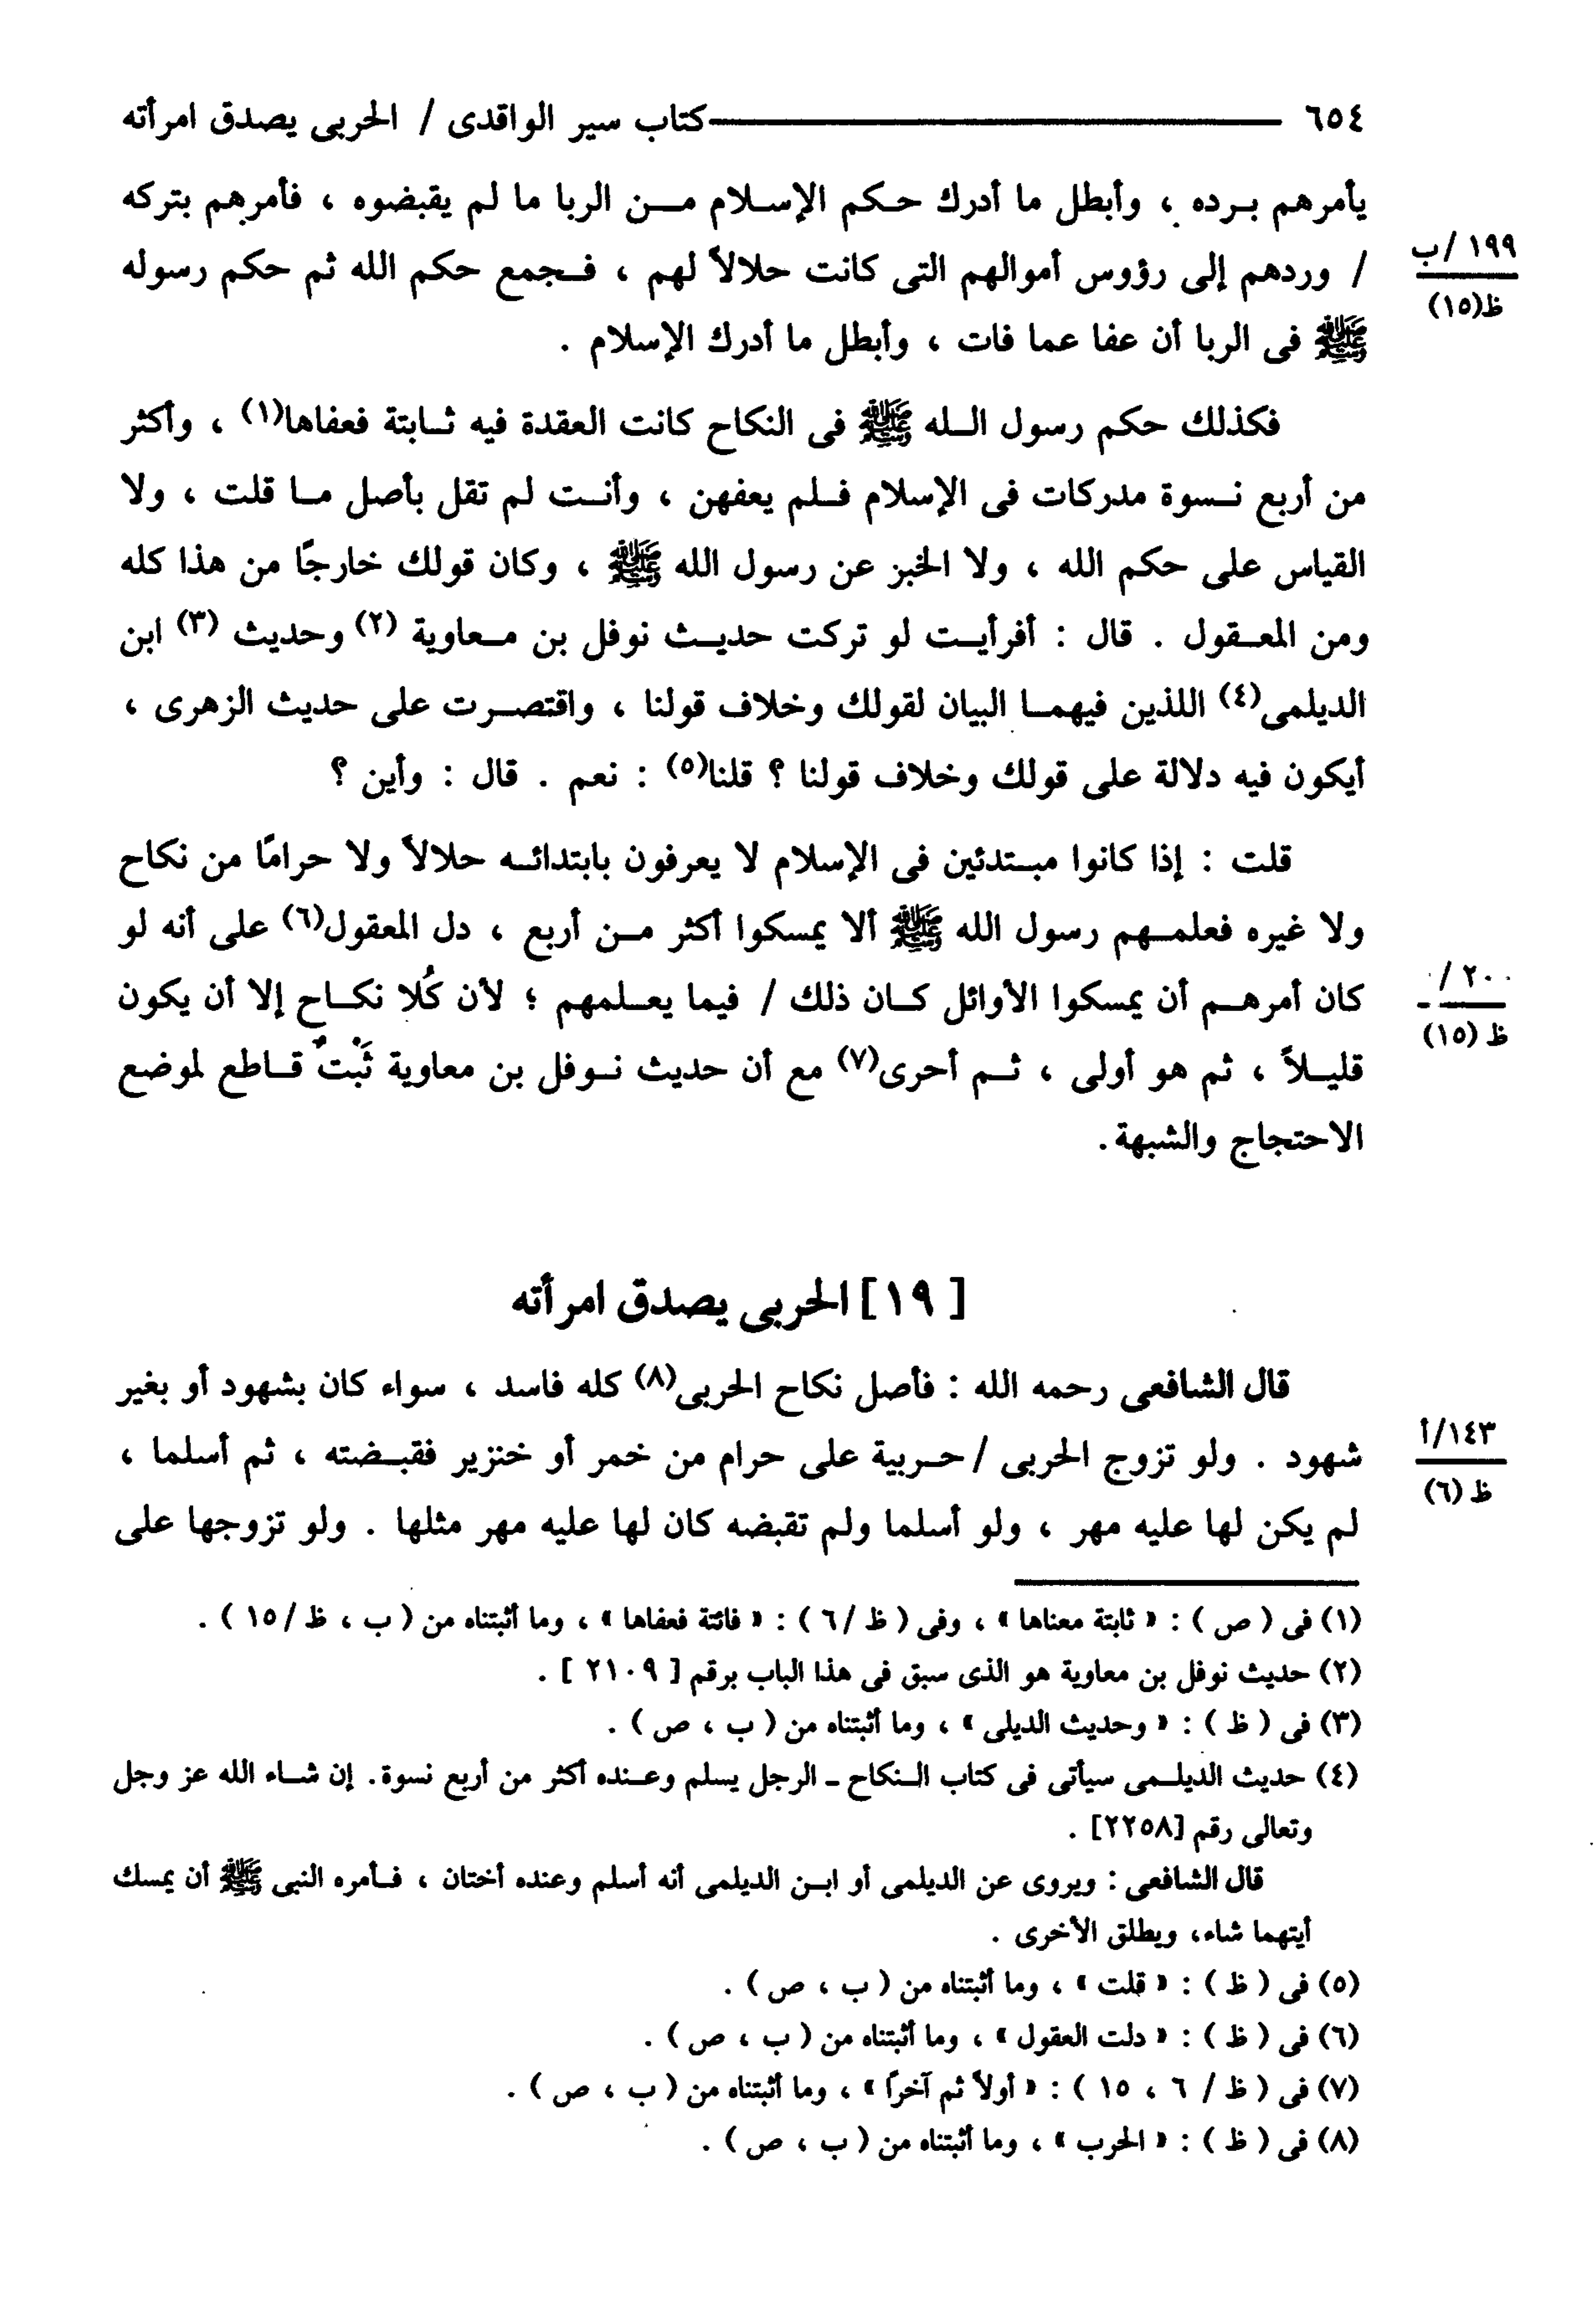 ٦٥٤ ــــــــــ كتاب سير الواقدى / الحربى يصدق امرأته
يأمرهم برده ، وأبطل ما أدرك حكم الإسلام من الربا ما لم يقبضوه ، فأمرهم بتركه
١٩٩/ب
ظ(١٥)
/ وردهم إلى رؤوس أموالهم التى كانت حلالاً لهم ، فجمع حكم الله ثم حكم رسوله
ﷺ فى الربا أن عفا عما فات ، وأبطل ما أدرك الإسلام .
فكذلك حكم رسول الله ﷺ فى النكاح كانت العقدة فيه ثابتة فعفاها(١) ، وأكثر
من أربع نسوة مدركات فى الإسلام فلم يعفهن ، وأنت لم تقل بأصل ما قلت ، ولا
القياس على حكم الله ، ولا الخبز عن رسول الله ﷺ ، وكان قولك خارجًا من هذا كله
ومن المعقول . قال : أفرأيت لو تركت حديث نوفل بن معاوية (٢) وحديث (٣) ابن
الديلمى(٤) اللذين فيهما البيان لقولك وخلاف قولنا ، واقتصرت على حديث الزهرى ،
أيكون فيه دلالة على قولك وخلاف قولنا ؟ قلنا(٥) : نعم . قال : وأين ؟
قلت : إذا كانوا مبتدئين فى الإسلام لا يعرفون بابتدائه حلالاً ولا حرامًا من نكاح
ولا غيره فعلمهم رسول الله ﷺ ألا يمسكوا أكثر من أربع ، دل المعقول(٦) على أنه لو
٢٠٠/
ظ (١٥)
كان أمرهم أن يمسكوا الأوائل كان ذلك / فيما يعلمهم ؛ لأن كُلا نكاح إلا أن يكون
قليلاً ، ثم هو أولى ، ثم أحرى(٧) مع أن حديث نوفل بن معاوية ثَبْتٌ قاطع لموضع
الاحتجاج والشبهة .
[ ١٩ ] الحربى يصدق امرأته
قال الشافعى رحمه الله : فأصل نكاح الحربى(٨) كله فاسد ، سواء كان بشهود أو بغير
١٤٣/أ
ظ (٦)
شهود . ولو تزوج الحربى / حربية على حرام من خمر أو خنزير فقبضته ، ثم أسلما ،
لم يكن لها عليه مهر ، ولو أسلما ولم تقبضه كان لها عليه مهر مثلها . ولو تزوجها على
(١) فى ( ص ) : « ثابتة معناها » ، وفى ( ظ / ٦ ) : « فائتة فعفاها » ، وما أثبتناه من ( ب ، ظ / ١٥ ) .
(٢) حديث نوفل بن معاوية هو الذى سبق فى هذا الباب برقم [ ٢١٠٩ ] .
(٣) فى ( ظ ) : « وحديث الديلى » ، وما أثبتناه من ( ب ، ص ) .
(٤) حديث الديلمى سيأتى فى كتاب النكاح ـ الرجل يسلم وعنده أكثر من أربع نسوة. إن شاء الله عز وجل
وتعالى رقم [٢٢٥٨] .
قال الشافعى : ويروى عن الديلمى أو ابن الديلمى أنه أسلم وعنده أختان ، فأمره النبى ﷺ أن يمسك
أيتهما شاء، ويطلق الأخرى .
(٥) فى ( ظ ) : « قلت » ، وما أثبتناه من ( ب ، ص ) .
(٦) فى ( ظ ) : « دلت العقول » ، وما أثبتناه من ( ب ، ص ) .
(٧) فى ( ظ / ٦ ، ١٥ ) : « أولاً ثم آخراً » ، وما أثبتناه من ( ب ، ص ) .
(٨) فى ( ظ ) : « الحرب » ، وما أثبتناه من ( ب ، ص ) .